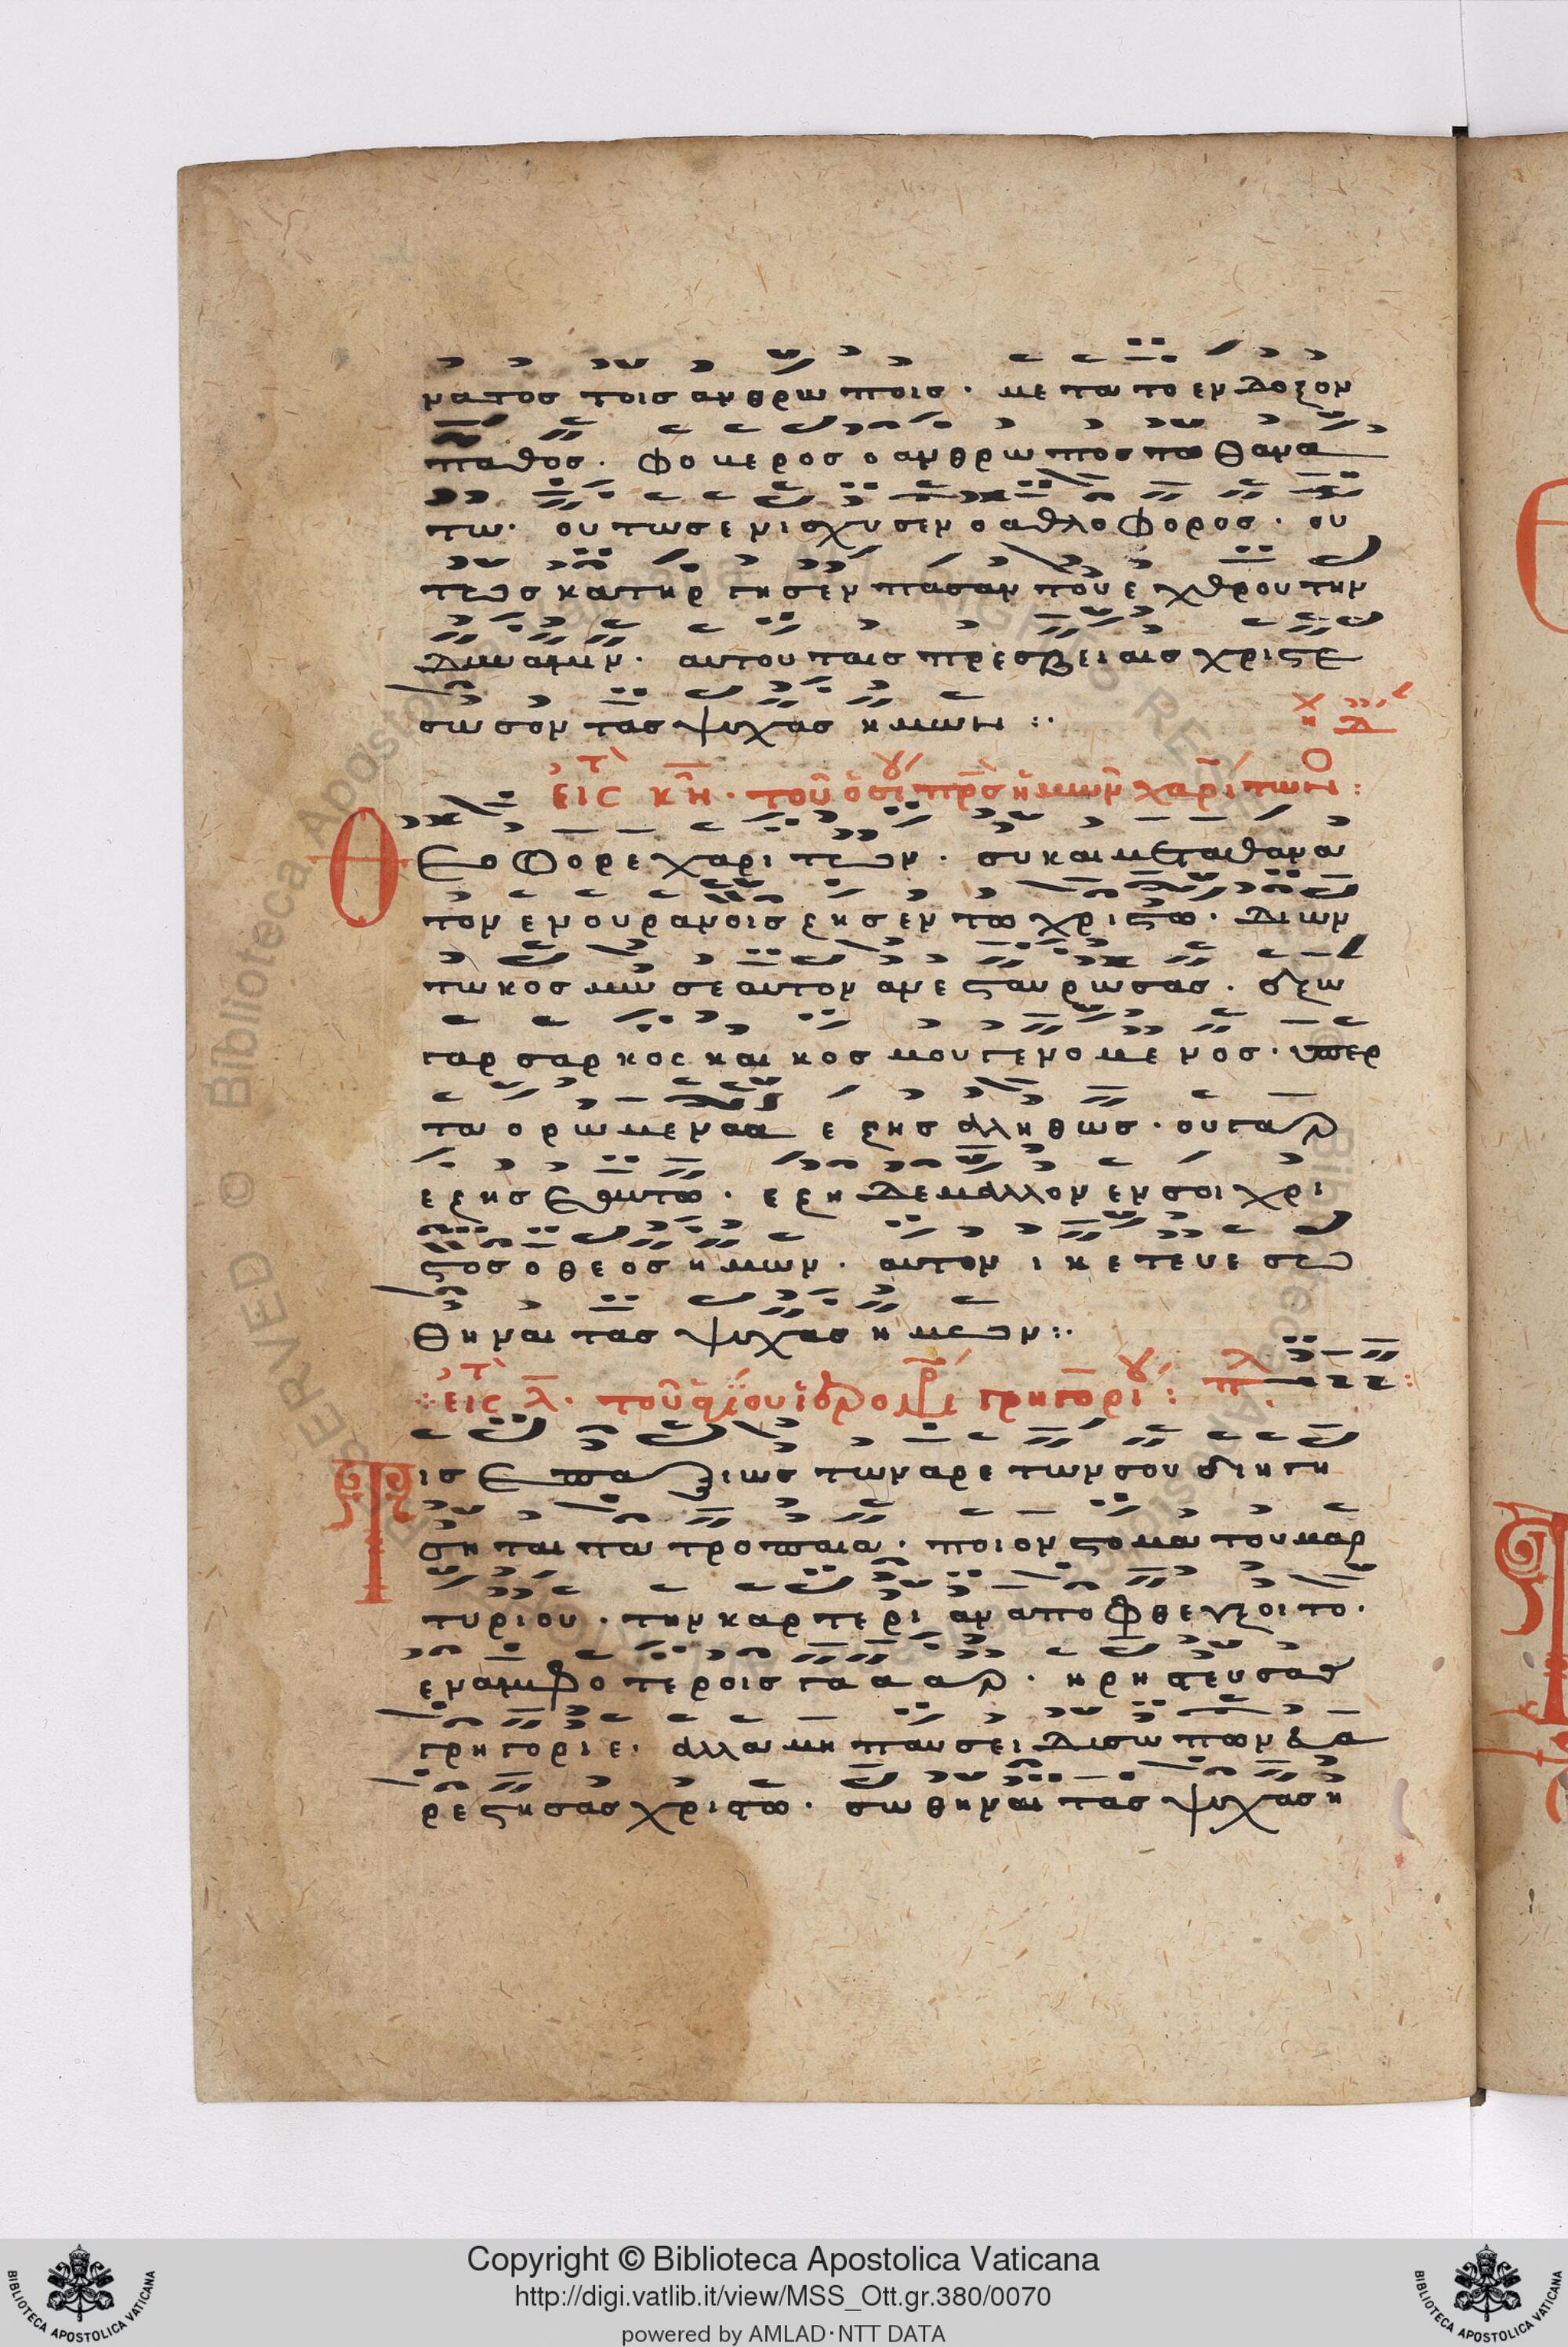 ματος τοις ανθρωποις · μετα το ενδοξον
παθος · φοβερος ο ανθρωπος τω θανα
τω · ουτως ενισχυσεν ο αθλοφορος · ου
τως κατηργησεν πασαν του εχθρου την
δυναμιν · αυτου ταις πρεσβειαις χριστε
σωσον τας ψυχας ημων :·
εἰς τ κη · τοῦ ὁσι πρς ἡμῶν χαρίτων :
Θεοφορε χαριτων · συ και μετα θανα
τον εν ουρανοις ζης εν τω χριστω · δι ων
τω κοσμω σεαυτον ανεσταυρωσας · εξω
γαρ σαρκος και κοσμου γενομενος · υπερ
τα ορωμενα εζης αληθως · ου γαρ
εζης εαυτω · εζη δε μαλλον εν σοι χρι
στος ο θεος ημων · αυτον ικετευε σω
θηναι τας ψυχας ημων :·
εἰς τ λ · τοῦ ἁγίου ἱερομρ γρηγορι :
Τις επαξιως των αρετων σου διηγη
σηται τα τροπαια · ποιον στομα του μαρ
τυριου · την καρτεριαν αποφθεγξοιτο ·
εν αμφοτεροις γα α αρ · ηριστευσας
γρηγοριε · αλλα μη παυσει δυσωπων ευα
ρεστησας χριστω · σωθηναι τας ψυχας η
Copyright © Biblioteca Apostolica Vaticana
http://digi.vatlib.it/view/MSS_Ott.gr.380/0070
powered by AMLAD·NTT DATA
BIBLIOTECA APOSTOLICA VATICANA
BIBLIOTECA APOSTOLICA VATICANA